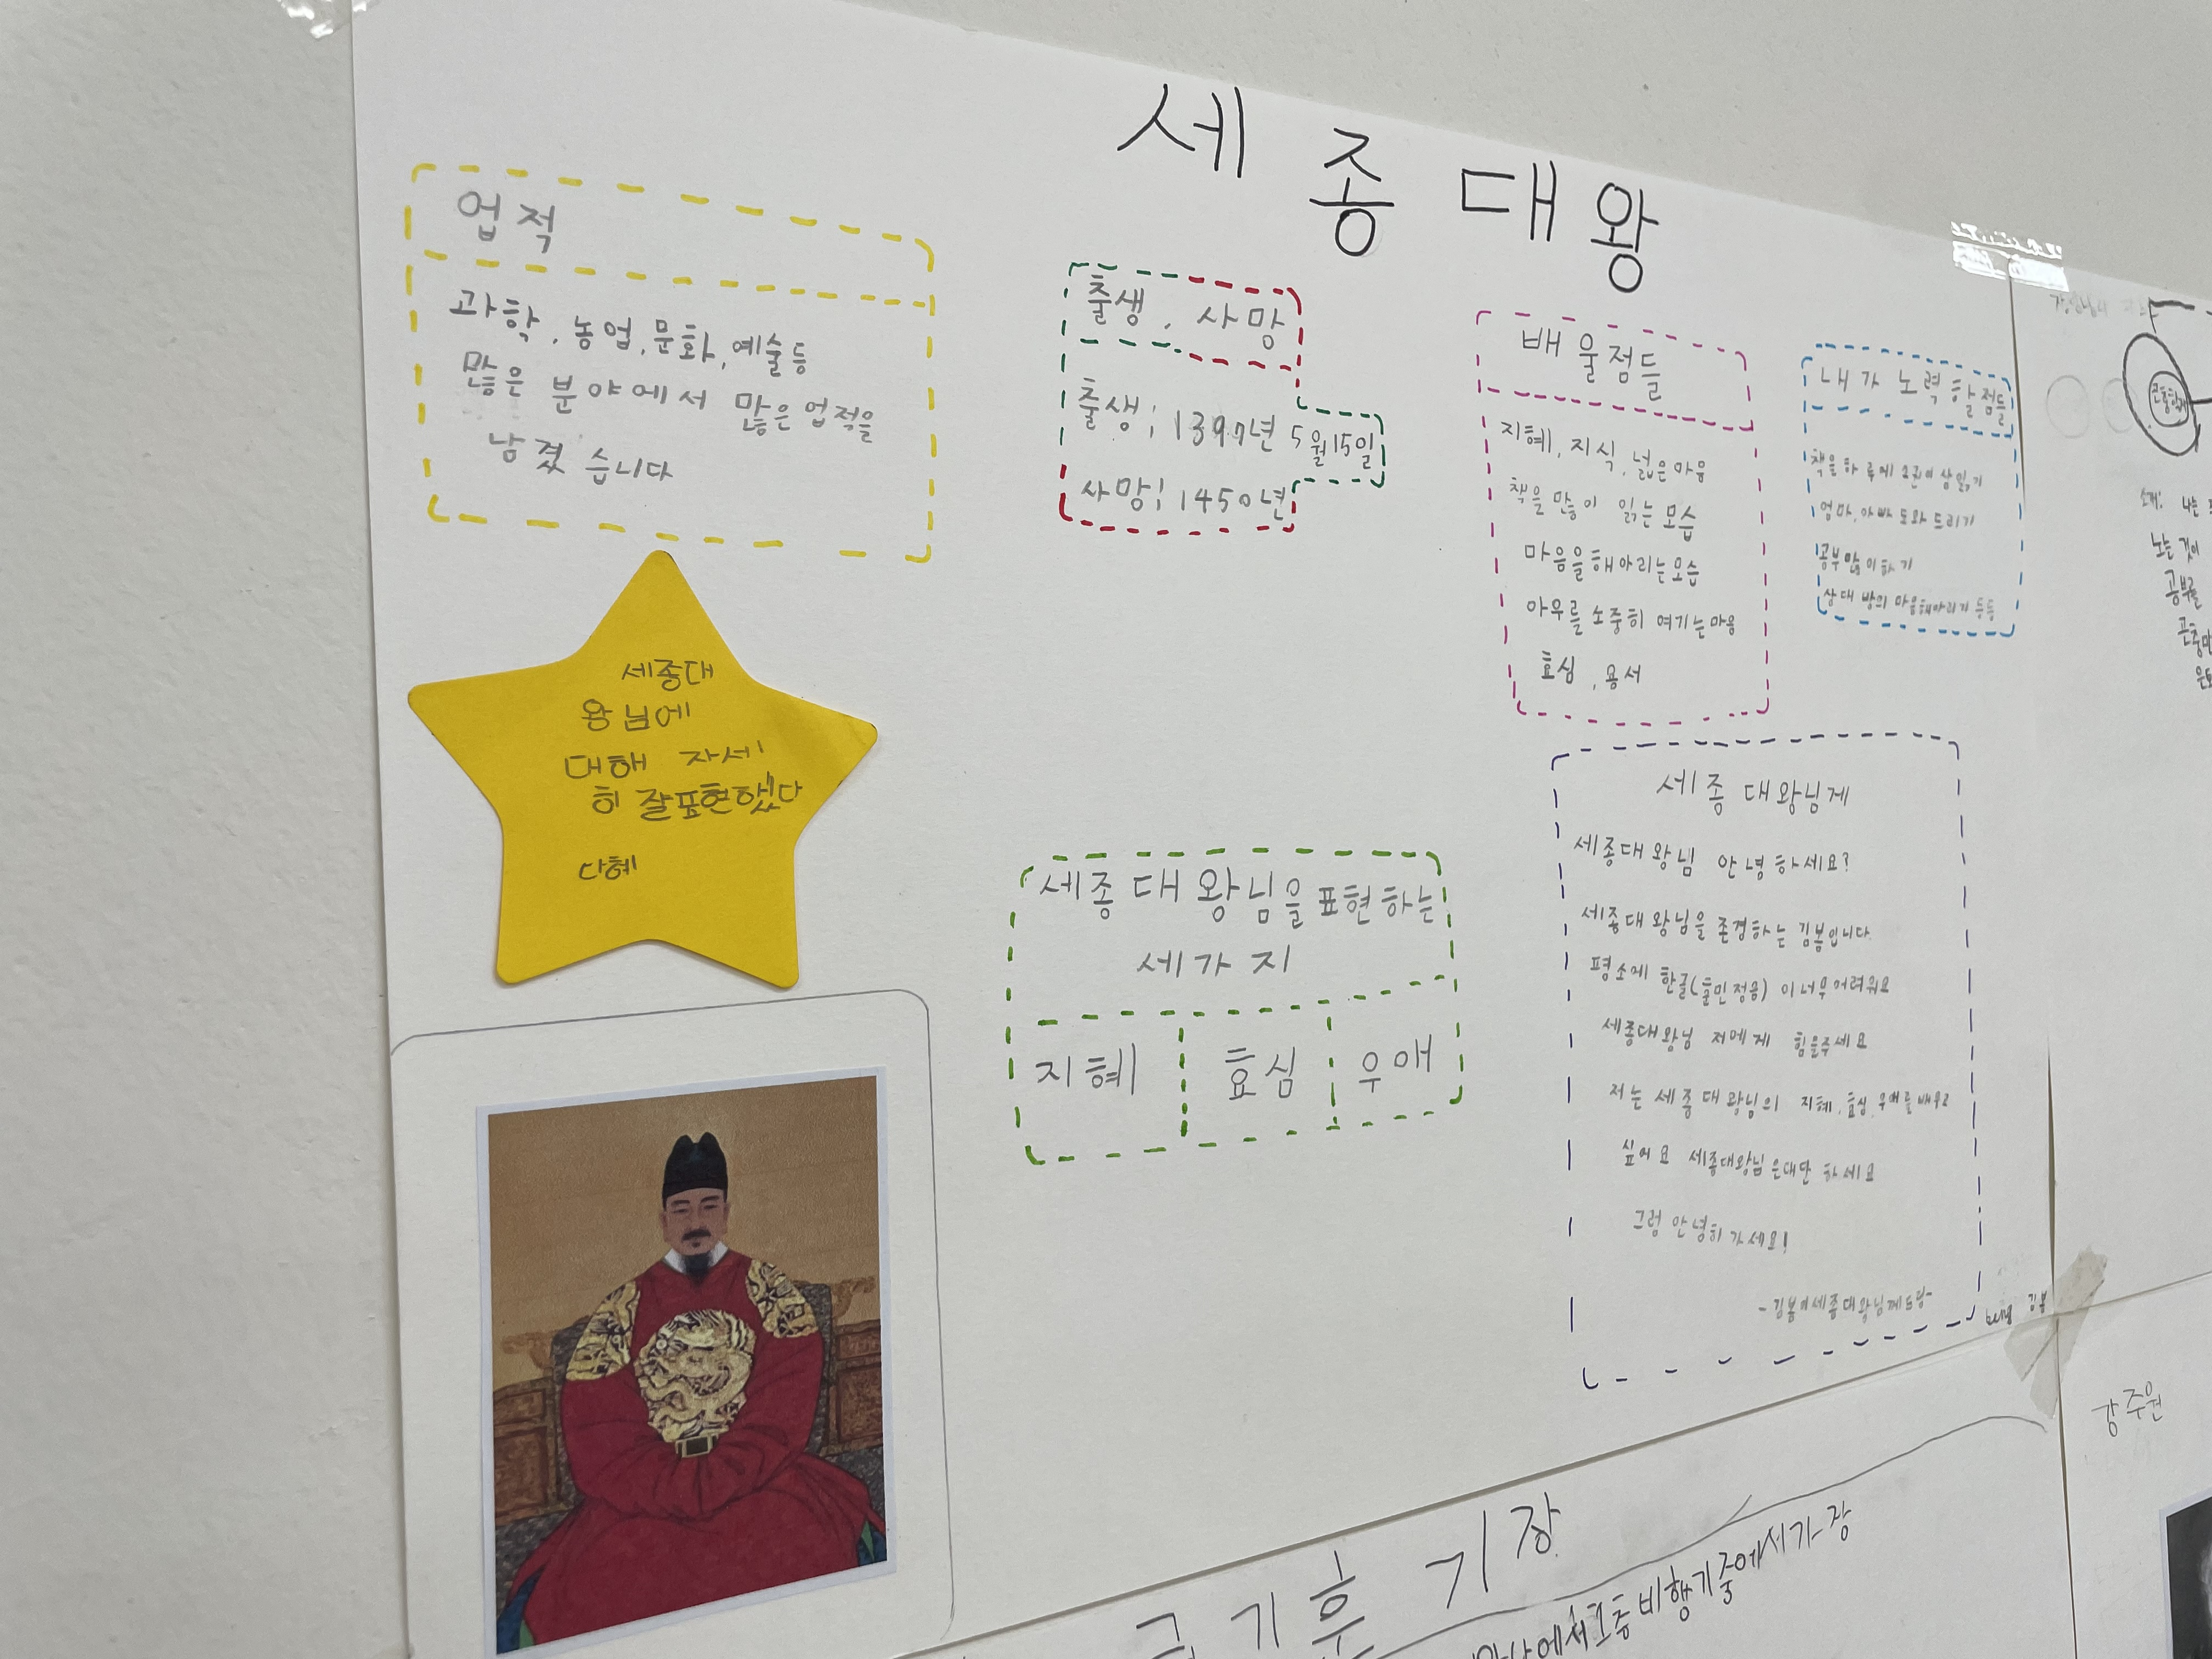 세종대왕
업적
과학, 농업, 문화, 예술등
많은 분야에서 많은 업적을
남겼습니다
출생, 사망
출생; 1397년 5월15일
사망; 1450년
배울점들
지혜, 지식, 넓은마음
책을 많이 읽는 모습
마음을해아리는모습
아우를 소중히 여기는마음
효심, 용서
내가 노력할점들
책을하루에 2권이상읽기
엄마, 아빠 도와드리기
공부많이하기
상대방의 마음해아리기 등등
세종대
왕님에
대해 자세
히 잘표현했다
다혜
세종대왕님을표현하는
세가지
지혜
효심
우애
세종 대왕님게
세종대왕님 안녕하세요?
세종대왕님을존경하는 김봄입니다
평소에 한글(훈민정음)이너무어려워요
세종대왕님 저에게 힘을주세요
저는 세종대왕님의 지혜, 효심, 우애를 배우고
싶어요 세종대왕님은대단하세요
그럼 안녕히가세요!
-김봄이세종대왕님께드림-
김봄
소개: 나는
노는 것이
공부를
기후 기장
비행기중에서가장
강주원